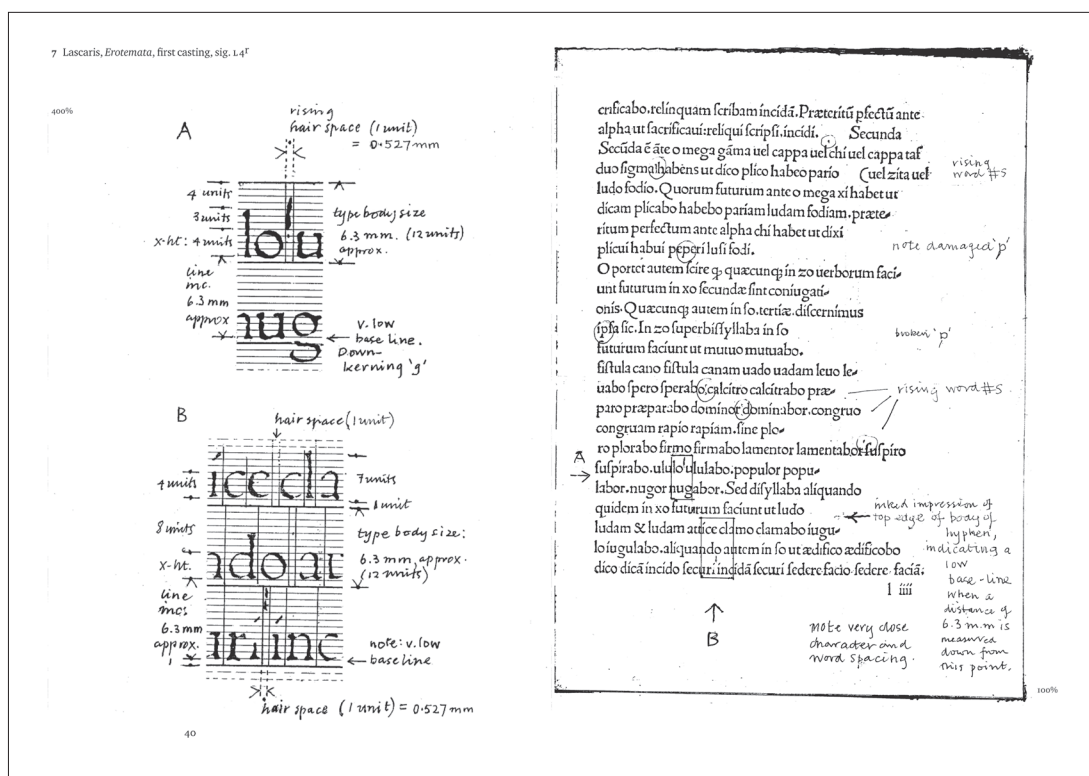 7 Lascaris, Erotemata, first casting, sig. L4r
400%
A
rising
hair space (1 unit)
= 0.527 mm
4 units
3 units
x-ht: 4 units
lo'u
type body size
6.3 mm. (12 units)
approx.
line
inc.
6.3 mm
approx
nug
v. low
base line.
Down-
kerning 'g'
B
hair space (1 unit)
4 units
ice cla
7 units
1 unit
8 units
x-ht.
ndo au
type body size:
6.3 mm, approx.
(12 units)
line
inc:
6.3 mm
approx.
uri,inc
note: v. low
base line
hair space (1 unit) = 0.527 mm
40
crificabo.relinquam ſcribam incidā. Præteritū pfectū ante
alpha ut ſacrificaui:reliqui ſcripſi.incidi. Secunda
Secūda ē āte o mega gāma uel cappa uel chi uel cappa taf
duo ſigma habens ut dico plico habeo pario (uel zita uel
ludo fodio. Quorum futurum ante o mega xi habet ut
dicam plicabo habebo pariam ludam fodiam. præte-
ritum perfectum ante alpha chi habet ut dixi
plicui habui peperi luſi fodi.
Oportet autem ſcire ꝙ quæcunꝗ in zo uerborum faci-
unt futurum in xo ſecundæ ſint coniugati-
onis. Quæcunꝗ autem in ſo. tertiæ. diſcernimus
ipſa ſic. In zo ſuperbiſſyllaba in ſo
futurum faciunt ut mutuo mutuabo.
fiſtula cano fiſtula canam uado uadam leuo le-
uabo ſpero ſperabo calcitro calcitrabo præ-
paro præparabo dominor dominabor. congruo
congruam rapio rapiam. ſine plo-
ro plorabo firmo firmabo lamentor lamentabor ſuſpiro
ſuſpirabo. ululo ululabo. populor popu-
labor. nugor nugabor. Sed diſyllaba aliquando
quidem in xo futurum faciunt ut ludo
ludam & ludam attice clamo clamabo iugu-
lo iugulabo. aliquando autem in ſo ut ædifico ædificobo
dico dicā incido ſecuri incidā ſecuri ſedere facio ſedere faciā:
l iiii
rising
word #s
note damaged 'p'
broken 'p'
rising word #s
A
inked impression of
top edge of body of
hyphen,
indicating a
low
base-line
when a
distance of
6.3 mm is
measured
down from
this point.
B
note very close
character and
word spacing.
100%